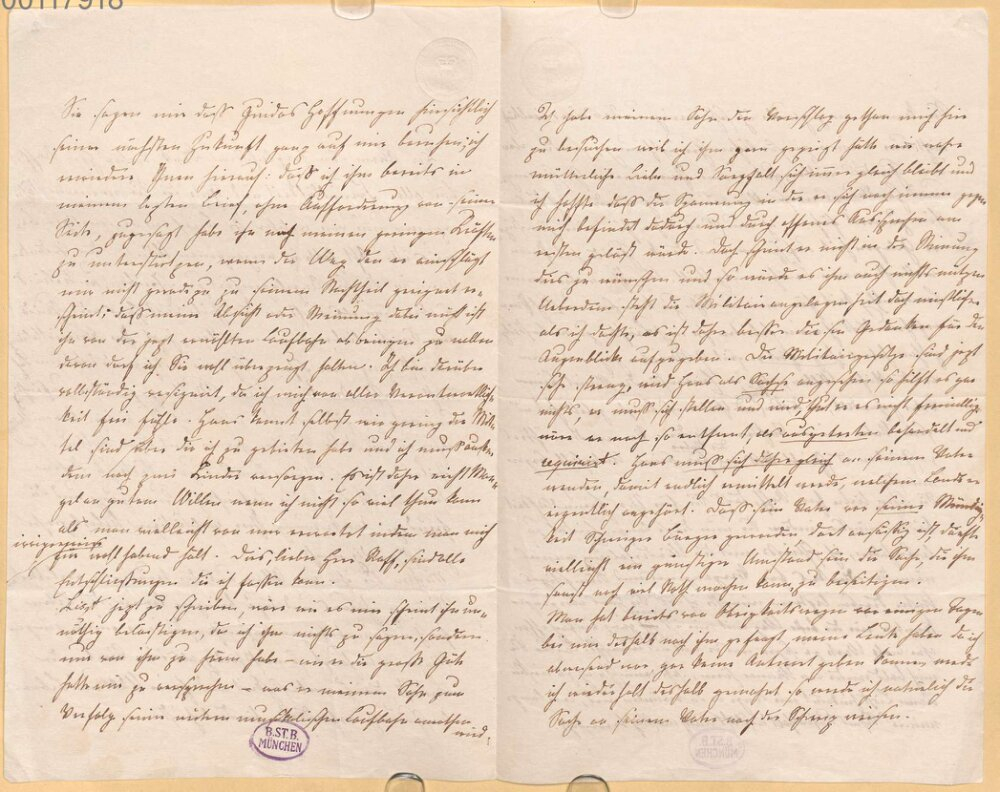 00117918
Sie sagen mir daß Guidos Hoffnungen hinsichtlich
seiner nächsten Zukunft ganz auf mir beruhen; ich
erwiedere Ihnen hierauf: daß ich ihm bereits in
meinem letzten Brief, ohne Aufforderung von seiner
Seite, zugesagt habe ihn nach meinen geringen Kräften
zu unterstützen, wenn der Weg den er einschlägt
mir nicht geradezu zu seinem Nachtheil geeignet er-
scheint; daß meine Absicht oder Meinung dabei nicht ist
ihn von der jetzt erwählten Laufbahn abbringen zu wollen
davon darf ich Sie wohl überzeugt halten. Ich bin darüber
vollständig resignirt, da ich mich von aller Verantwortlich-
keit frei fühle. Hans kennt selbst wie gering die Mit-
tel sind über die ich zu gebieten habe und ich muß außer-
dem noch zwei Kinder versorgen. Es ist daher nicht Man-
gel an gutem Willen wenn ich nicht so viel thun kann
als man vielleicht von mir erwartet indem man mich
irrigerweise
für wohlhabend hält. Dies, lieber Herr Raff, sind alle
Entschließungen die ich fassen kann.
Liszt jetzt zu schreiben, wäre wie es mir scheint ihn un-
nöthig belästigen, da ich ihm nichts zu sagen, sondern
nur von ihm zu hören habe – wie er die große Güte
hatte mir zu versprechen – was er meinem Sohn zum
Verfolg seiner weitern musikalischen Laufbahn anrathen
wird.
B.ST.B.
MÜNCHEN
Ich habe meinem Sohn den Vorschlag gethan mich hier
zu besuchen weil ich ihm gern gezeigt hätte wie
mütterliche Liebe und Sorgfalt sich immer gleich bleibt und
ich hoffte daß die Spannung in der er sich noch immer gegen
mich befindet dadurch und durch offenes Aussprechen am
ersten gelöst würde. Doch scheint er nicht
dies zu wünschen und so würde es ihm auch nichts nutzen
Ueberdem steht die Militairangelegenheit doch mißlicher
als ich dachte, es ist daher besser diesen Gedanken für den
Augenblick aufzugeben. Die Militairgesetze sind jetzt
sehr streng, wird Hans als Sachse angesehen so hilft es gar
nichts, er muß sich stellen und wird, thut er es nicht freiwillig
wäre er noch so entfernt, als ausgetreten behandelt und
requirirt. Hans muß sich daher gleich an seinen Vater
wenden, damit endlich ermittelt werde, welchem Lande er
eigentlich angehört. Daß sein Vater vor seiner Mündig-
keit Schweizer Bürger geworden, dort ansäßig ist dürfte
vielleicht ein günstiger Umstand sein, die Sache, die ihm
sonst noch viel Noth machen kann, zu beseitigen.
Man hat bereits von Obrigkeitswegen vor einigen Tagen
bei mir deshalb nach ihm gefragt, meine Leute haben da ich
abwesend war, gar keine Antwort geben können, werde
ich wiederholt deshalb gemahnt so werde ich natürlich die
Sache an seinen Vater nach der Schweiz weisen.